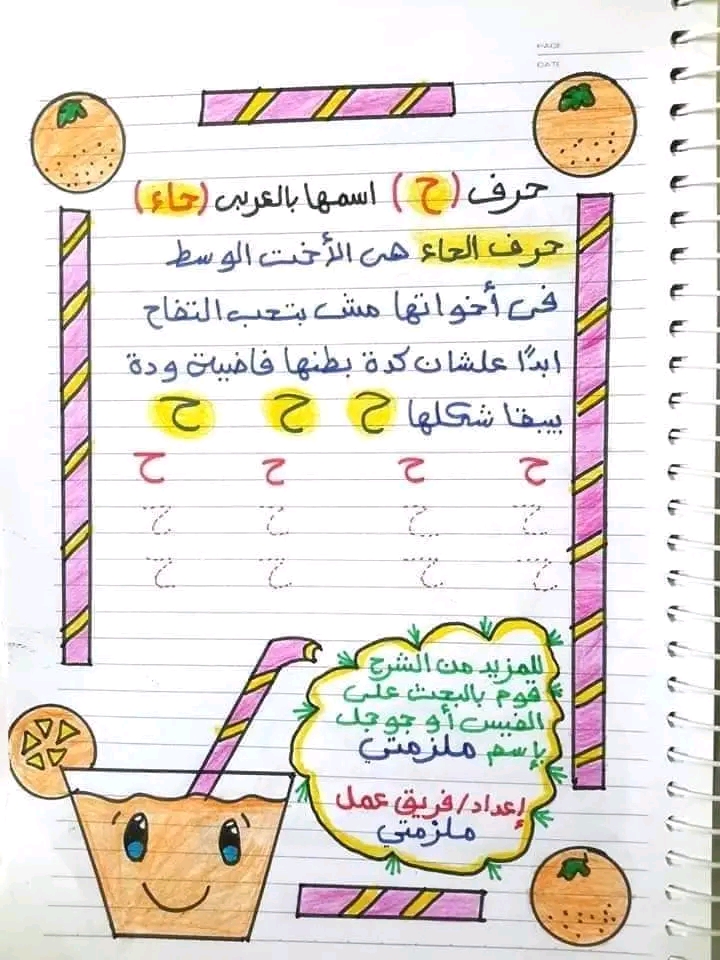 PAGE
DATE
حرف (ح) اسمها بالعربى (حاء)
حرف الحاء هى الأخت الوسط
فى أخواتها مش بتحب التفاح
ابدًا علشان كدة بطنها فاضية ودة
يبقا شكلها ح ح ح
ح ح ح ح
ح ح ح ح
ح ح ح ح
للمزيد من الشرح
قوم بالبحث على
الفيس أو جوجل
بإسم ملزمتي
إعداد/فريق عمل
ملزمتي